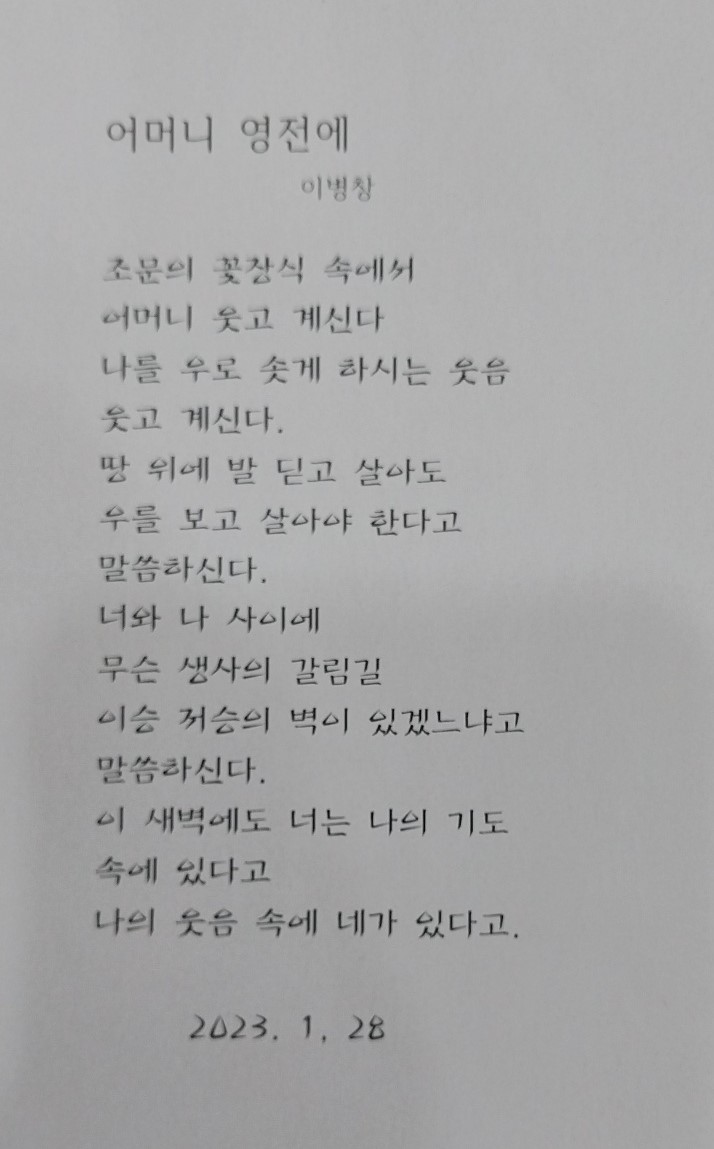 어머니 영전에
이병창
조문의 꽃장식 속에서
어머니 웃고 계신다
나를 우로 솟게 하시는 웃음
웃고 계신다.
땅 위에 발 딛고 살아도
우를 보고 살아야 한다고
말씀하신다.
너와 나 사이에
무슨 생사의 갈림길
이승 저승의 벽이 있겠느냐고
말씀하신다.
이 새벽에도 너는 나의 기도
속에 있다고
나의 웃음 속에 네가 있다고.
2023. 1, 28